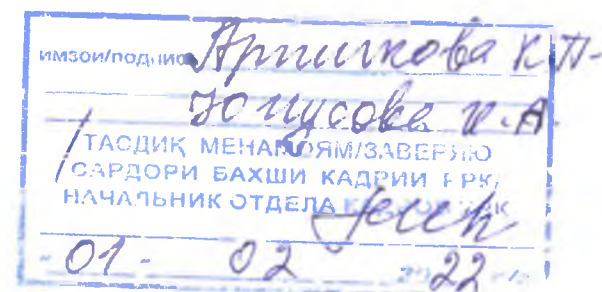 имзои/подпись Аршикова К.П.
Юнусова И.А.
ТАСДИҚ МЕНАМОЯМ/ЗАВЕРЯЮ
САРДОРИ БАХШИ КАДРИИ
НАЧАЛЬНИК ОТДЕЛА
01 02 2022